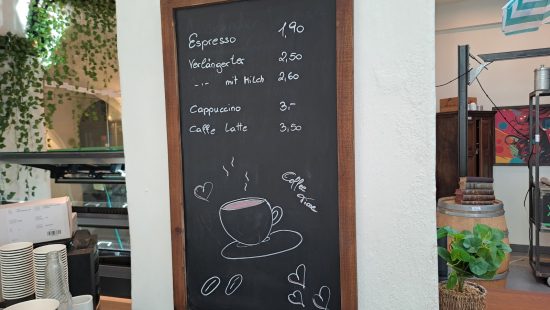 Espresso 1,90
Verlängerter 2,50
-"- mit Milch 2,60
Cappuccino 3,-
Caffe Latte 3,50
Coffee
time